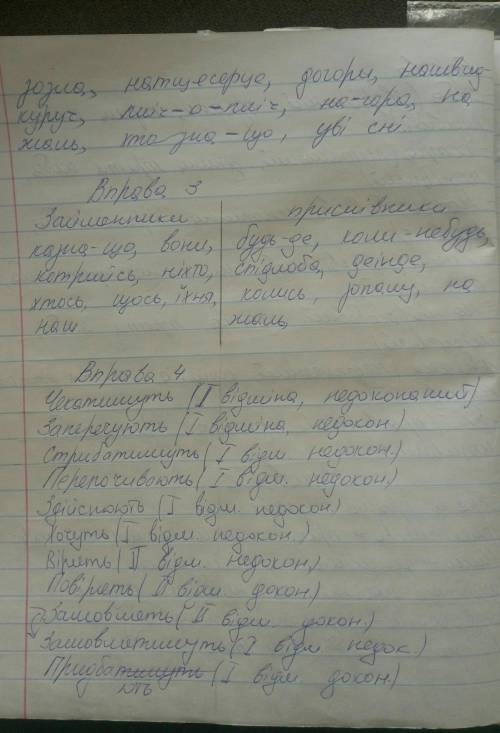 зозла, натщесерце, догори, нашвид-
куруч, пліч-о-пліч, на-гора, на
жаль, хто зна-що, уві сні
Вправа 3
Займенники
казна-що, вони,
котрийсь, ніхто,
хтось, щось, їхня,
наш
прислівники
будь-де, коли-небудь,
спідлоба, деінде,
колись, зопалу, на
жаль
Вправа 4
Чекатимуть (І відміна, недоконаний)
Заперечують (І відміна, недокон.)
Стрибатимуть (І відм недокон.)
Перепочивають (І відм. недокон.)
Здійснюють (І відм. недокон.)
Хочуть (І відм. недокон.)
Вірять (ІІ відм. недокон.)
Повірять (ІІ відм. докон.)
Замовлять (ІІ відм. докон.)
Замовлятимуть (І відм недок.)
Придбатимуть (І відм. докон.)
ють